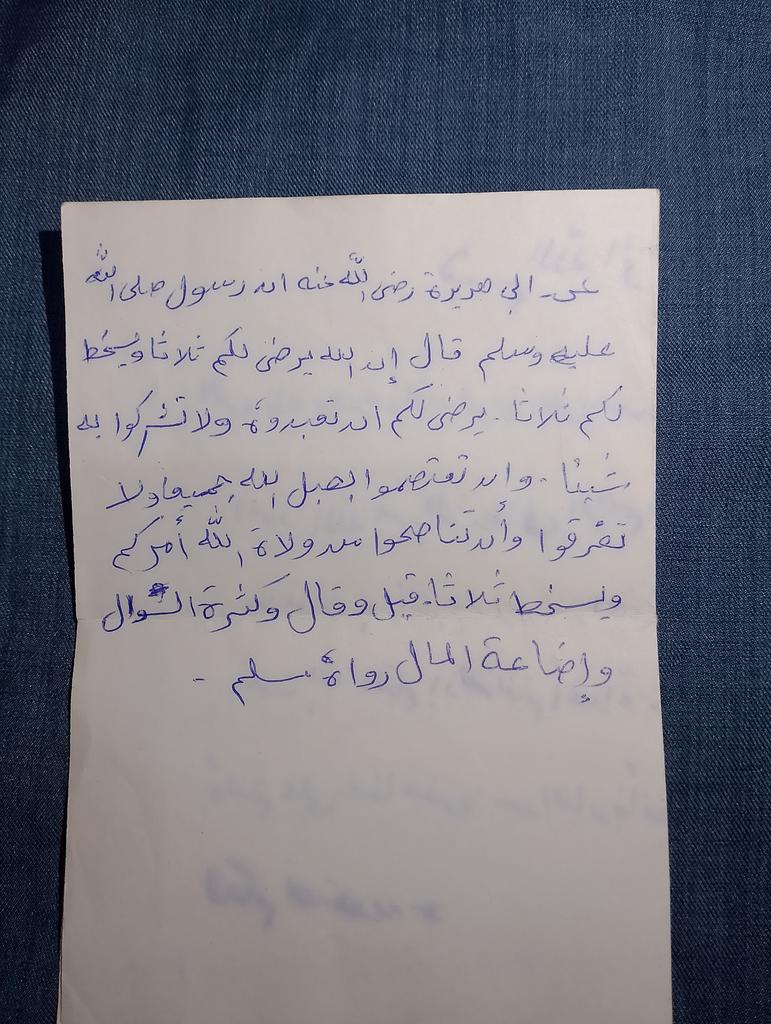 عن ابي هريرة رضى الله عنه ان رسول صلى الله
عليه وسلم قال إن الله يرضى لكم ثلاثا ويسخط
لكم ثلاثا. يرضى لكم ان تعبدوه ولا تشركوا به
شيئا. وان تعتصموا بحبل الله جميعا ولا
تفرقوا وأن تناصحوا من ولاة الله أمركم
ويسخط ثلاثا. قيل وقال وكثرة السوال
وإضاعة المال رواه مسلم.